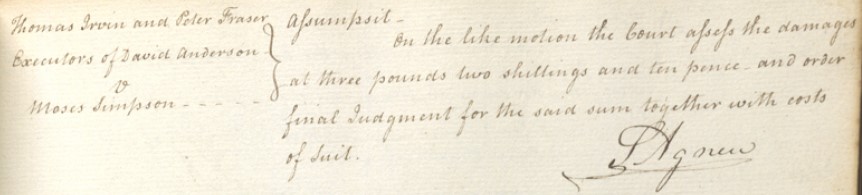 Thomas Irvin and Peter Fraser
Executors of David Anderson
v
Moses Simpson - - - - - -
Assumpsit -
On the like motion the Court assess the damages
at three pounds two shillings and ten pence - and order
final Judgment for the said sum together with costs
of Suit.
S Agnew